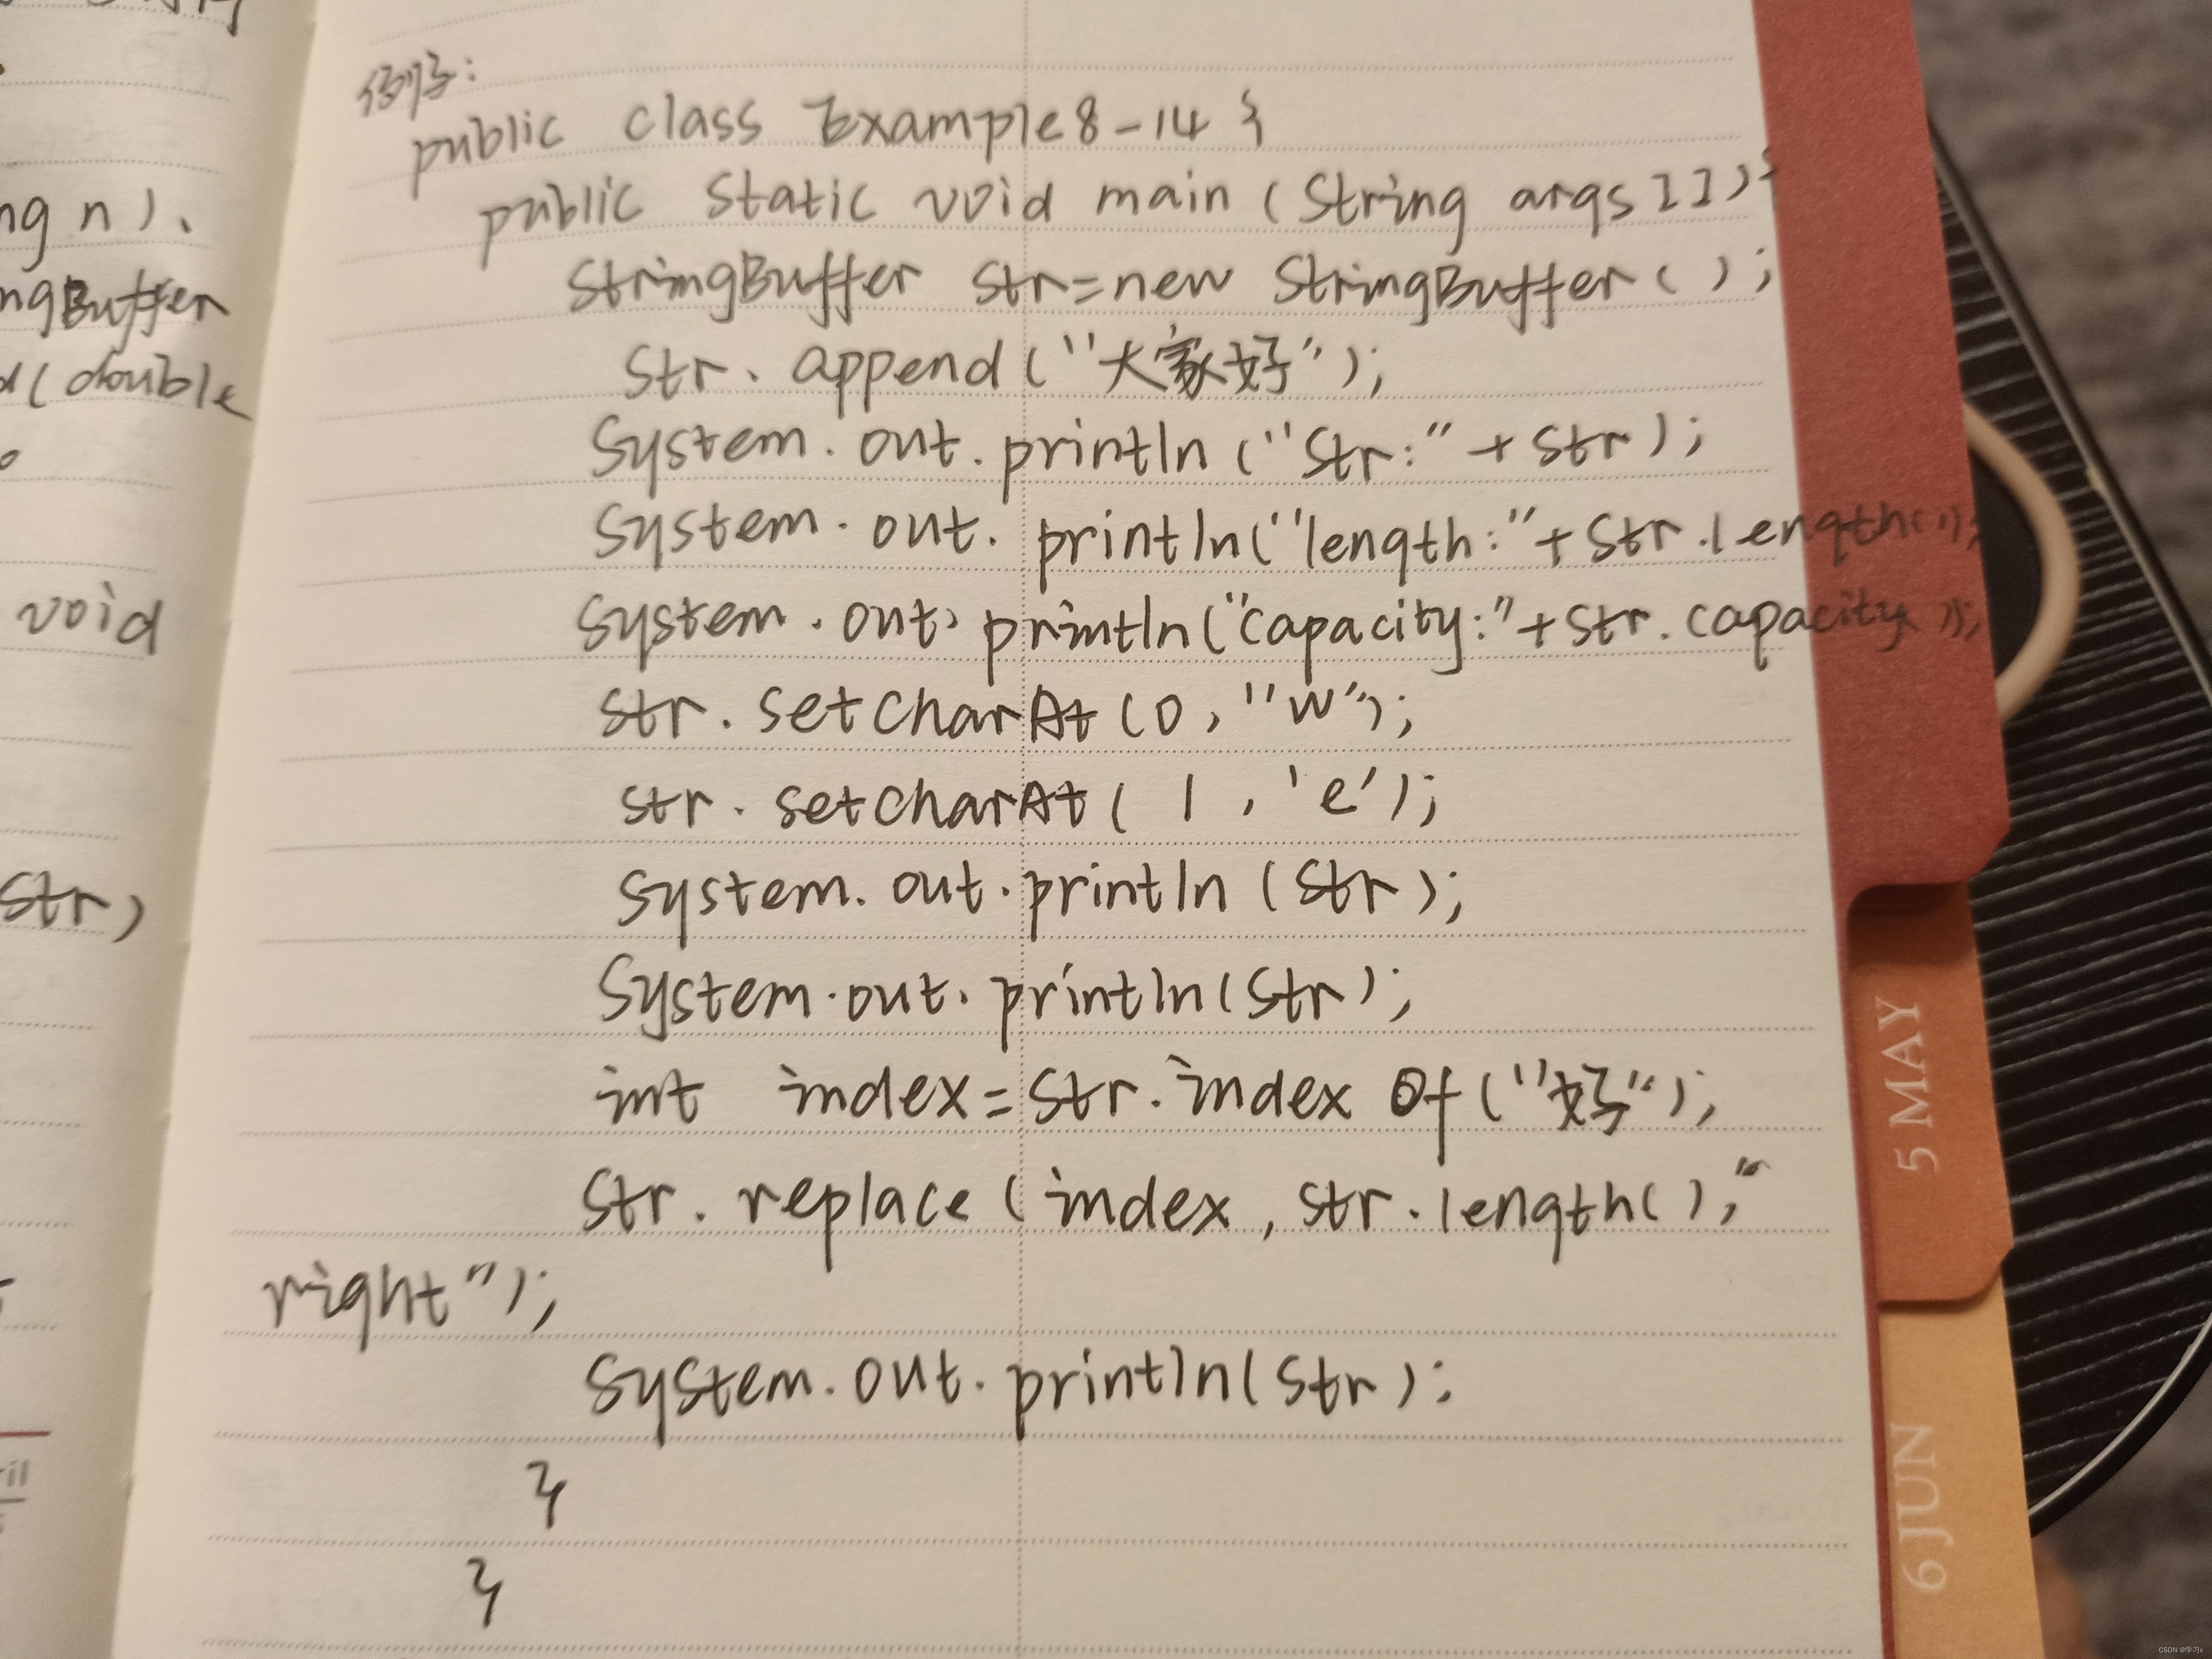 ng n)、
ngBuffer
d(double
void
str)
例子:
public class Example8-14 {
public static void main (String args[]){
StringBuffer str=new StringBuffer();
str. append("大家好");
System. out. println ("Str:" + str);
System. out. println("length:"+str.length());
System. out. println("capacity:"+str.capacity());
str. setCharAt (0, "w");
str. setCharAt( 1 , 'e');
System. out. println (str);
System. out. println(str);
int index=str. index Of("好");
str. replace (index, str. length(), "
right");
System. out. println(str);
}
}
5 MAY
6 JUN
CSDN @学习x